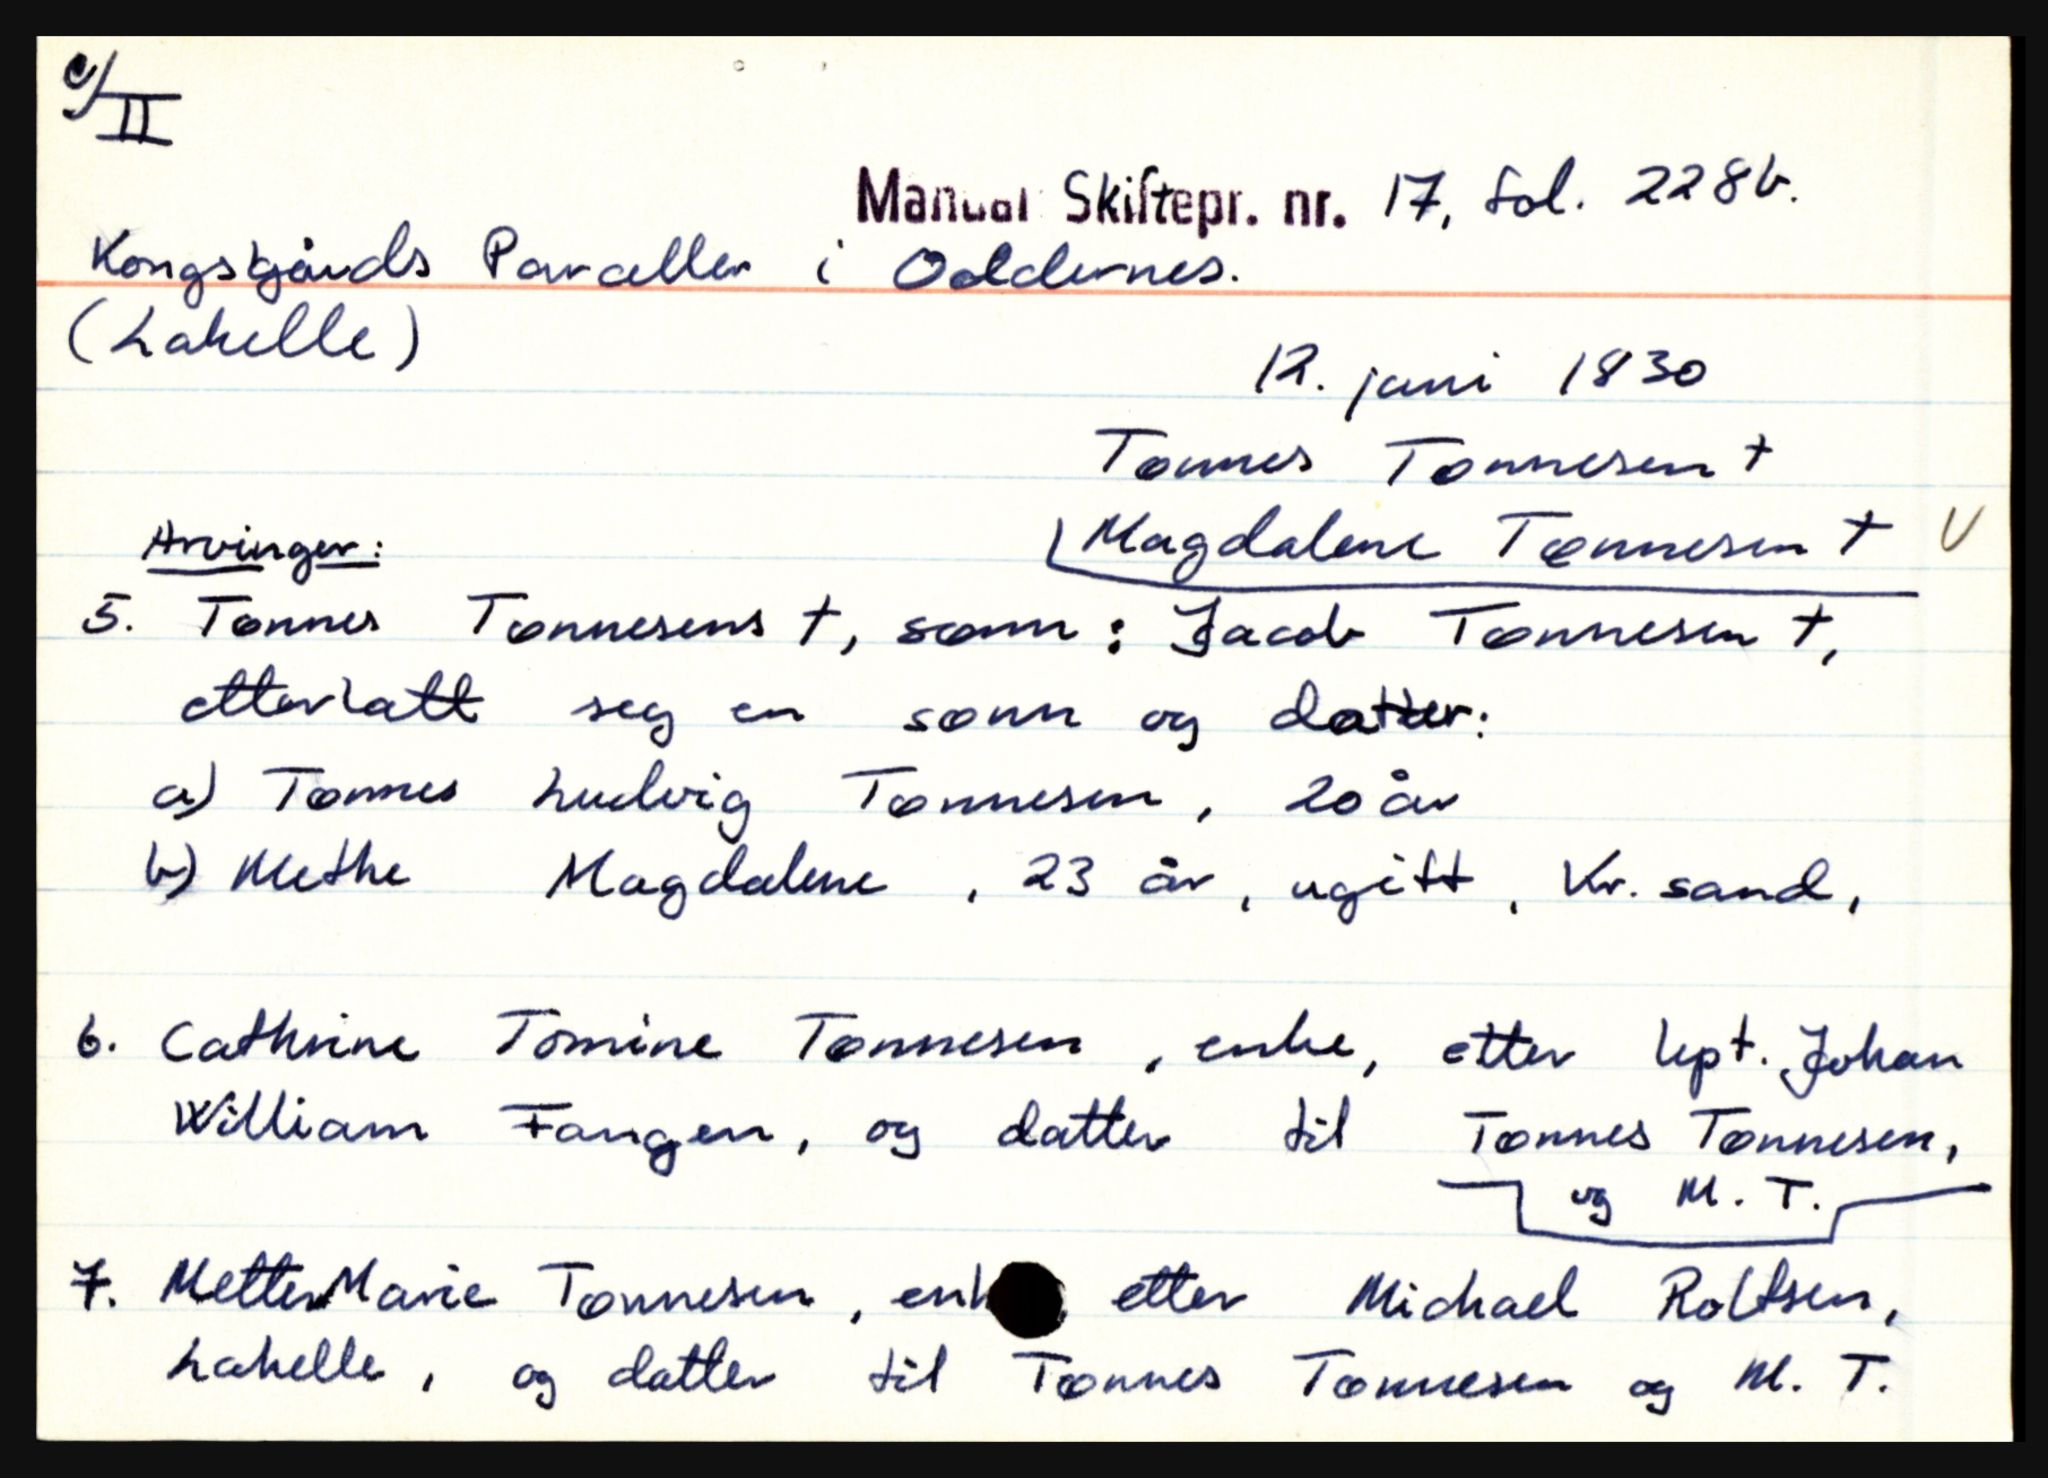 c/II
Manual Skiftepr. nr. 17, fol. 228b.
Kongsgårds Parceller i Oddernes.
(Lahelle)
12. juni 1830
Tønnes Tønnesen †
Magdalene Tønnesen † V
Arvinger:
5. Tønnes Tønnesens †, sønn: Jacob Tønnesen †,
etterlatt seg en sønn og datter:
a) Tønnes Ludvig Tønnesen, 20 år
b) Methe Magdalene, 23 år, ugift, Kr. sand,
6. Cathrine Tomine Tønnesen, enke, etter kpt. Johan
William Fangen, og datter til Tønnes Tønnesen,
og M. T.
7. Mette Marie Tønnesen, enk etter Michael Roltsen,
Lahelle, og datter til Tønnes Tønnesen og M. T.